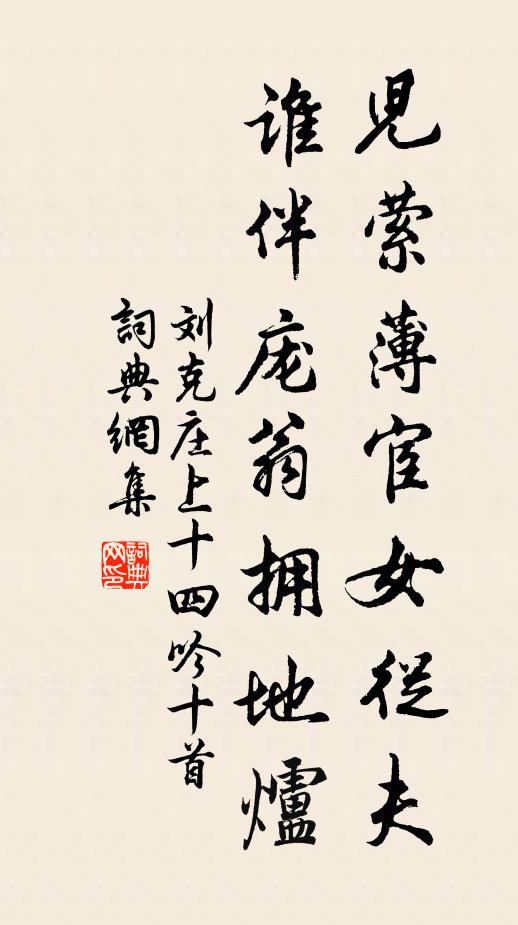 児萦薄宦女従夫
誰伴庞翁拥地爐
刘克庄上十四吟十首
詞典網集
詞典网印